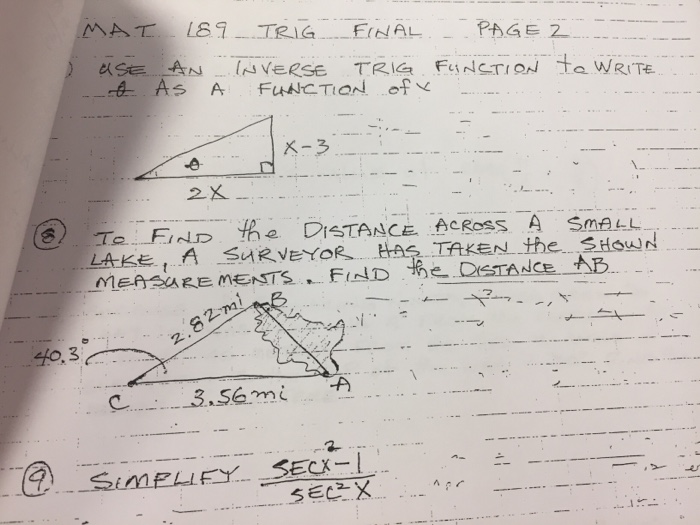 MAT 189 TRIG FINAL PAGE 2
) USE AN INVERSE TRIG FUNCTION to WRITE
θ AS A FUNCTION of x
x-3
θ
2x
8 TO FIND the DISTANCE ACROSS A SMALL
LAKE, A SURVEYOR HAS TAKEN the SHOWN
MEASUREMENTS. FIND the DISTANCE AB
2.82mi B
40.3°
C 3.56mi A
9 SIMPLIFY SEC²X-1
SEC²X